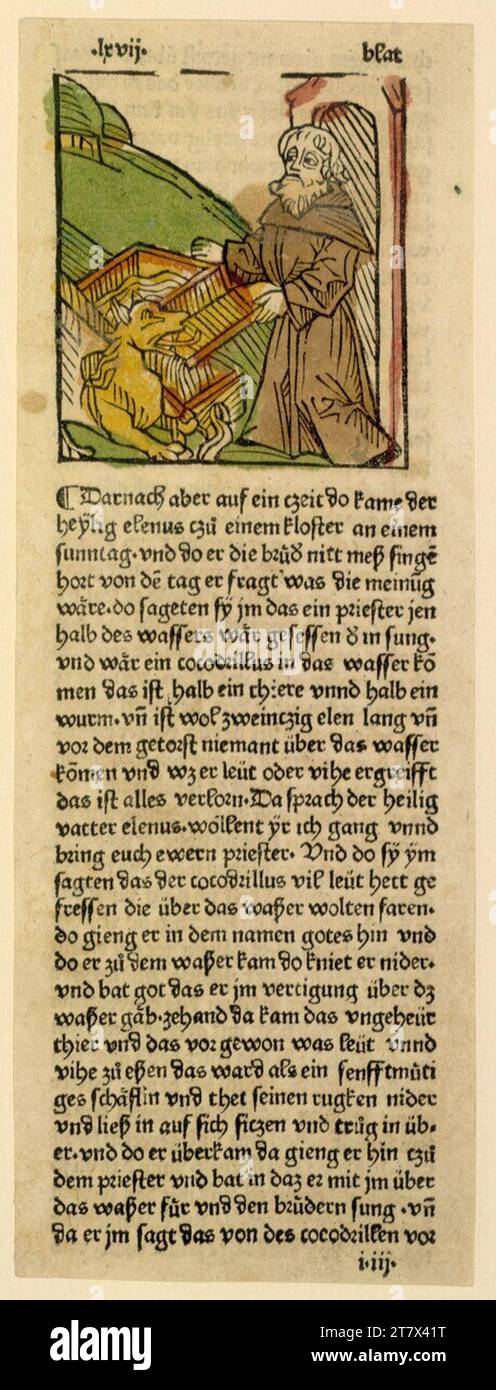 ·lxvij· blat
¶ Darnach aber auf ein czeit do kame der
heÿlig elenus czů einem kloster an einem
sunntag·vnd do er die brůd nitt meß singē
hort von dē tag er fragt was die meinūg
wäre·do sageten sÿ jm das ein priester jen
halb des wassers wär gesessen d̕ in sung·
vnd wär ein cocodrillus in das wasser kō
men das ist halb ein thiere vnnd halb ein
wurm·vn̄ ist wol zweinczig elen lang vn̄
vor dem getorst niemant über das wasser
kōmen vnd wz er leüt oder vihe ergreifft
das ist alles verlorn·Da sprach der heilig
vatter elenus·wöllent ÿr ich gang vnnd
bring euch ewern priester· Vnd do sÿ ÿm
sagten das der cocodrillus vil leüt hett ge
fressen die über das waßer wolten faren·
do gieng er in dem namen gotes hin vnd
do er zů dem waßer kam do kniet er nider·
vnd bat got das er jm vertigung über dz
waßer gäb·zehand da kam das vngeheür
thier vnd das vor gewon was leüt vnnd
vihe zů eßen das ward als ein senfftmůti
ges schäflin vnd thet seinen rugken nider
vnd ließ in auf sich siczen vnd trůg in üb·
er·vnd do er überkam da gieng er hin czů
dem priester vnd bat in daz er mit jm über
das waßer für vnd den brůdern sung ·vn̄
da er jm sagt das von des cocodrillen vor
i·iij·
alamy
Image ID: 2T7X41T
www.alamy.com